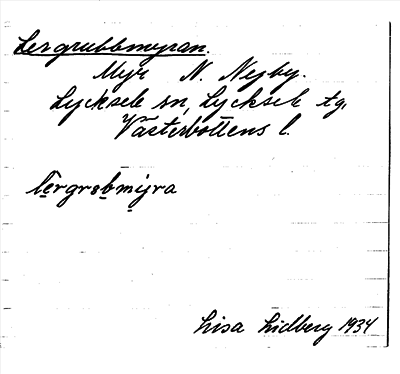 Lergrubbmyran.
Myr N. Nejby.
Lycksele sn, Lycksele tg.
Västerbottens l.
lergrobmyra
Lisa Lidberg 1934